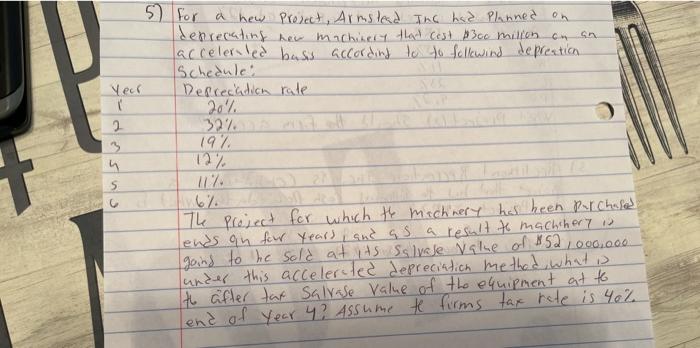 5) For a new Project, Armslead Inc had Planned on
deprecating new machinery that cost $300 million on an
accelerated bass according to to followind depreation
Schedule:
Year Depreciation rate
1 20%
2 32%
3 19%
4 12%
5 11%
6 6%
The project for which the machnery has been purchased
ends on four years, and as a result te machinery is
going to be sold at its salvage value of $52,000,000
under this accelerated depreciation method, what is
the after tax salvage value of the equipment at te
end of year 4? Assume te firms tax rate is 40%